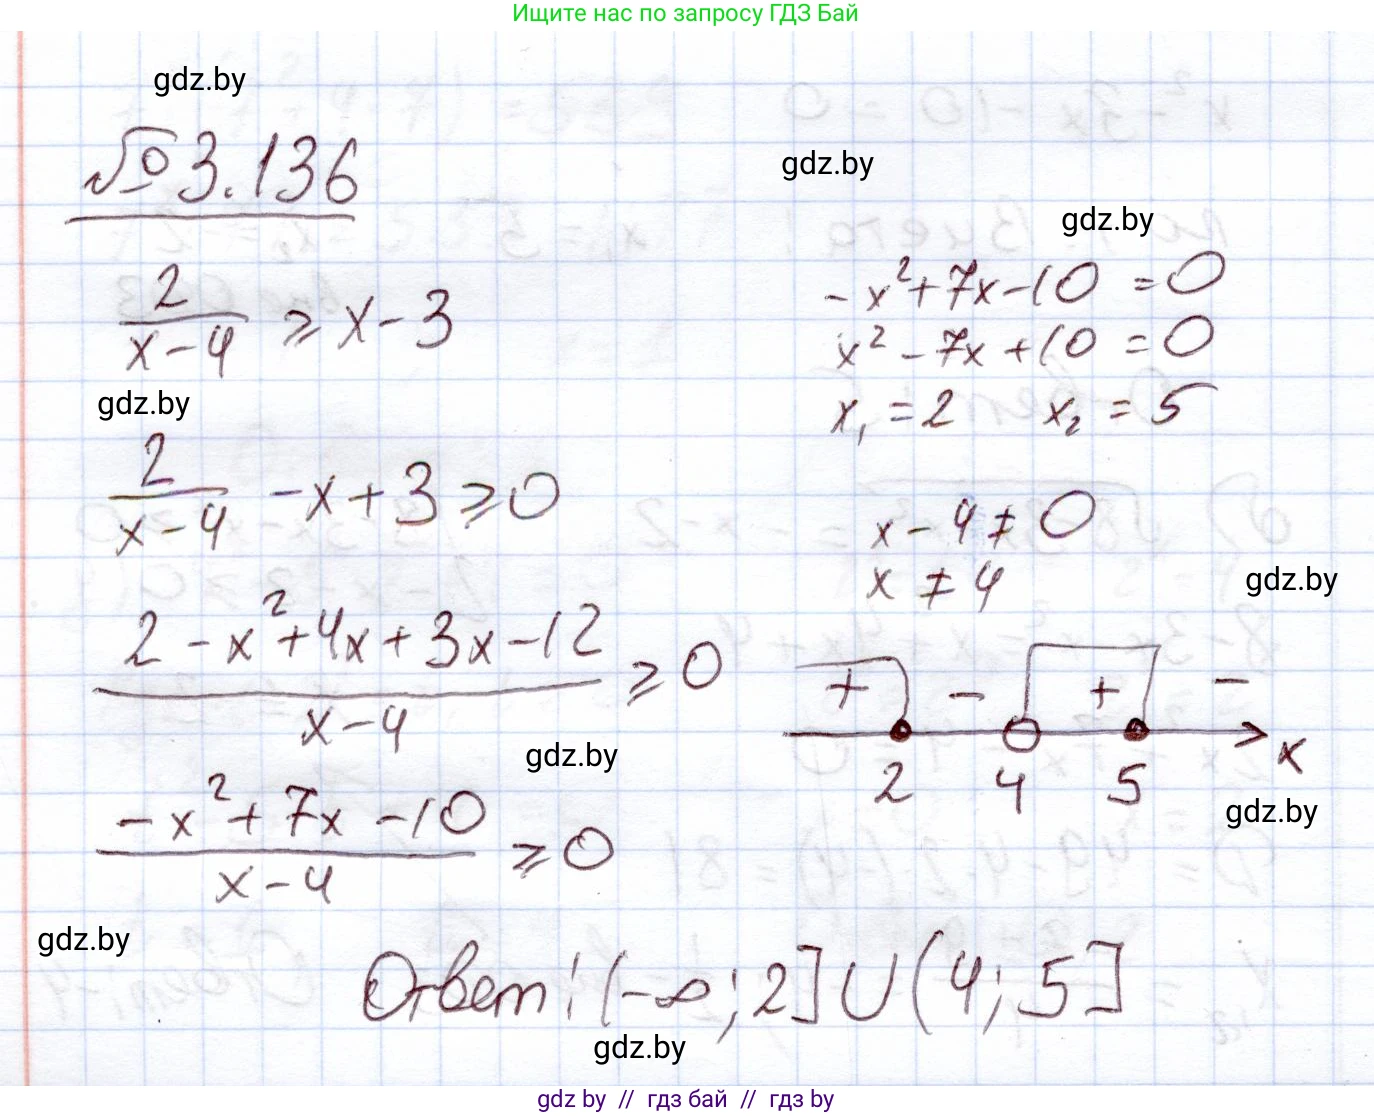 Ищите нас по запросу ГДЗ Бай
gdz.by
№ 3.136
gdz.by
gdz.by
2/(x-4) ⩾ x-3
gdz.by
2/(x-4) -x+3 ⩾ 0
(2-x²+4x+3x-12)/(x-4) ⩾ 0
gdz.by
(-x²+7x-10)/(x-4) ⩾ 0
gdz.by
-x²+7x-10 =0
x²-7x+10 =0
x₁ =2 x₂ =5
x-4≠0
x ≠ 4
gdz.by
+ - + -
2 4 5 x
gdz.by
Ответ: (-∞; 2] ∪ (4; 5]
gdz.by
gdz by // гдз бай // гдз by